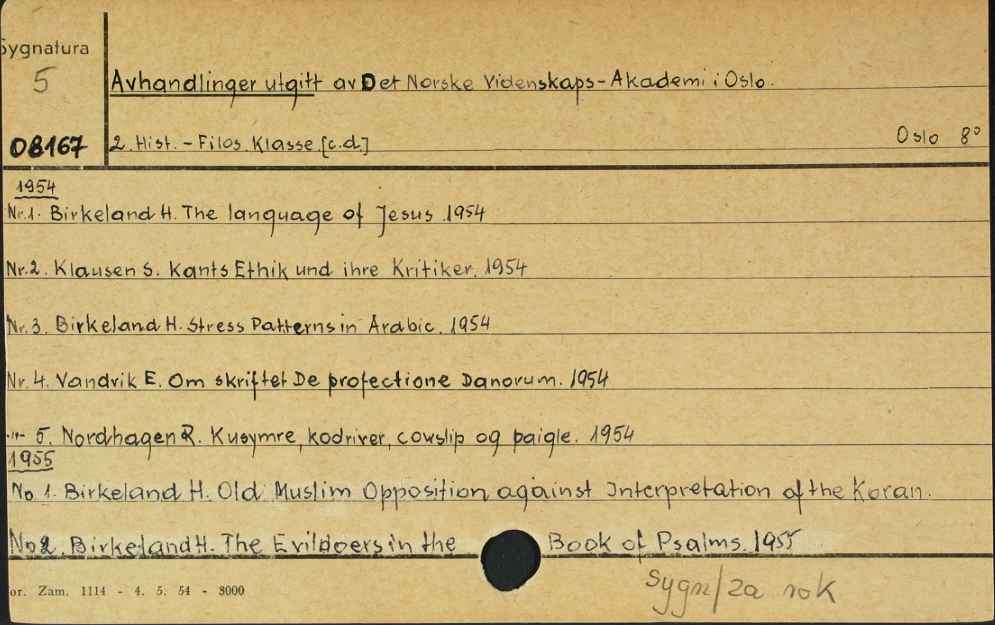 Sygnatura
5
Avhandlinger utgitt av Det Norske Videnskaps-Akademi i Oslo.
08167
2. Hist. - Filos. Klasse [c.d.]
Oslo 8°
1954
Nr.1. Birkeland H. The language of Jesus 1954
Nr.2. Klausen S. Kants Ethik und ihre Kritiker. 1954
Nr.3. Birkeland H. Stress Patterns in Arabic. 1954
Nr.4. Vandvik E. Om skriftet De profectione Danorum. 1954
-"- 5. Nordhagen R. Kusymre, kodriver, cowslip og paigle. 1954
1955
No 1. Birkeland H. Old Muslim Opposition against Interpretation of the Koran.
No 2. Birkeland H. The Evildoers in the Book of Psalms. 1955
or. Zam. 1114 - 4. 5. 54 - 8000
Sygn/za rok